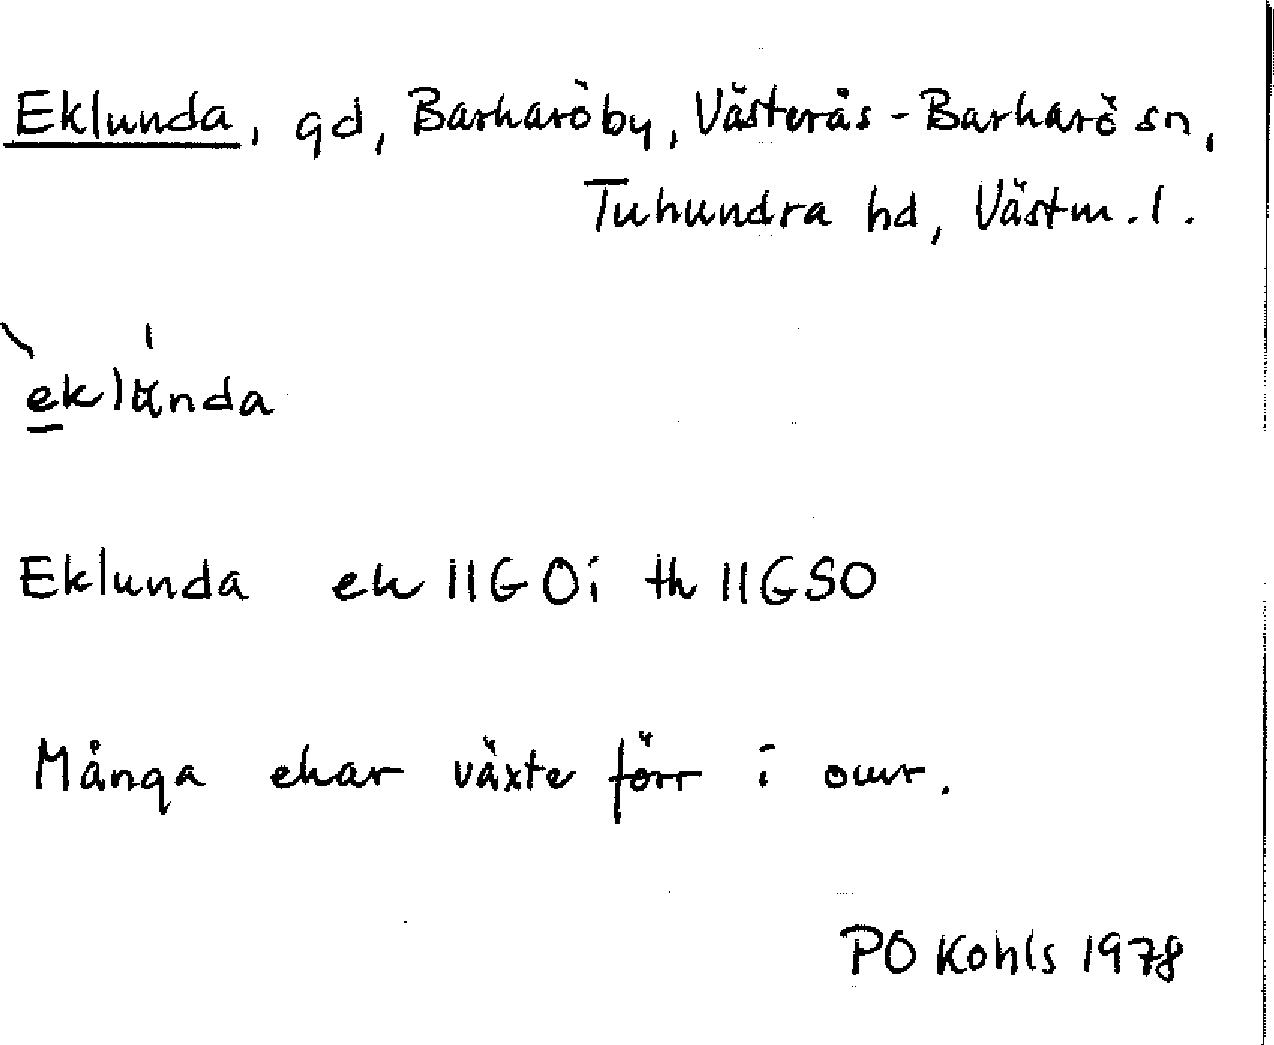 Eklunda, gd, Barkaröby, Västerås-Barkarö sn,
Tuhundra hd, Västm. l.
eklunda
Eklunda ek 11G0i th 11GSO
Många ekar växte förr i omr.
PO Kohls 1978